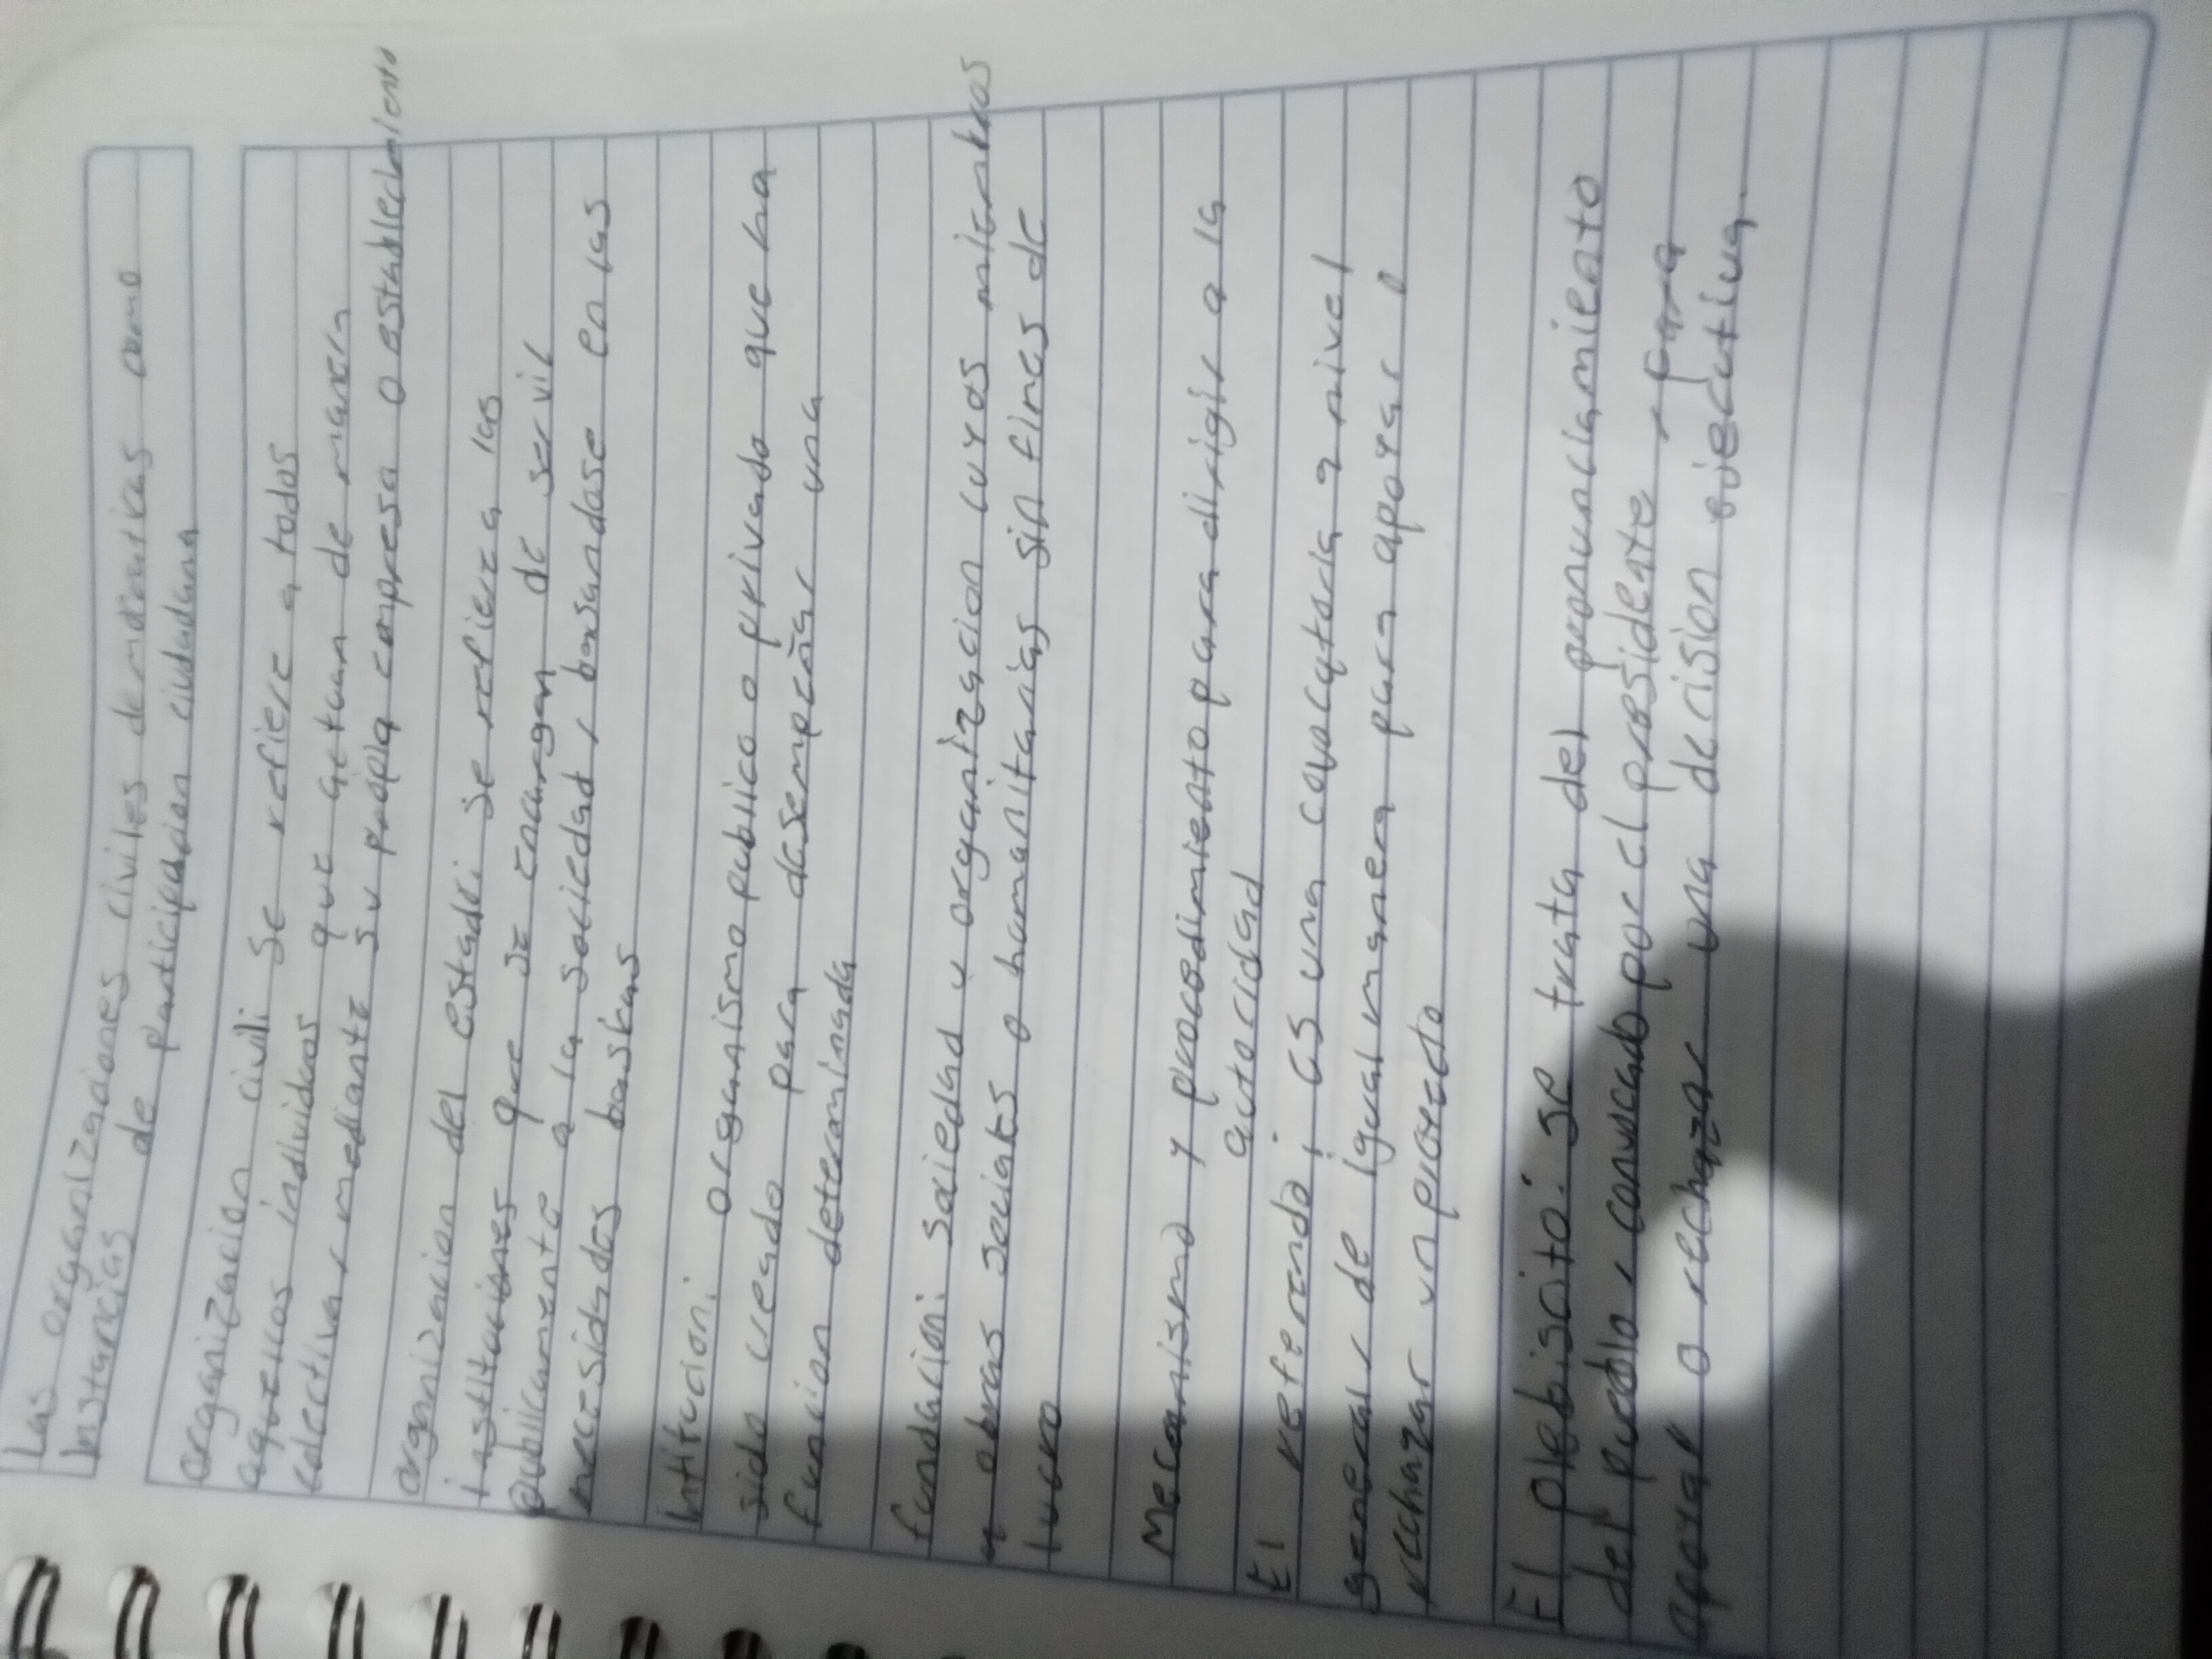 Las organizaciones civiles democraticas como
Instancias de participacion ciudadana
organizacion civil: se refiere a todos
aquellos individuos que actuan de manera
colectiva, mediante su propia empresa o establecimiento
organizacion del estado: se refiere a las
instituciones que se encargan de servir
publicamente a la sociedad, basandose en las
necesidades basicas
Intitucion: organismo publico o privado que ha
sido creado para desempeñar una
funcion determinada
fundacion: sociedad u organizacion cuyos miembros
y obras sociales o humanitarias sin fines de
lucro
Mecanismo y procedimiento para dirigir a la
autoridad
El referendo: es una covocatoria a nivel
general, de igual manera para apoyar o
rechazar un proyecto
El plebiscito: se trata del pronunciamiento
del pueblo, convocado por el presidente, para
apoyar o rechazar una decision ejecutiva.